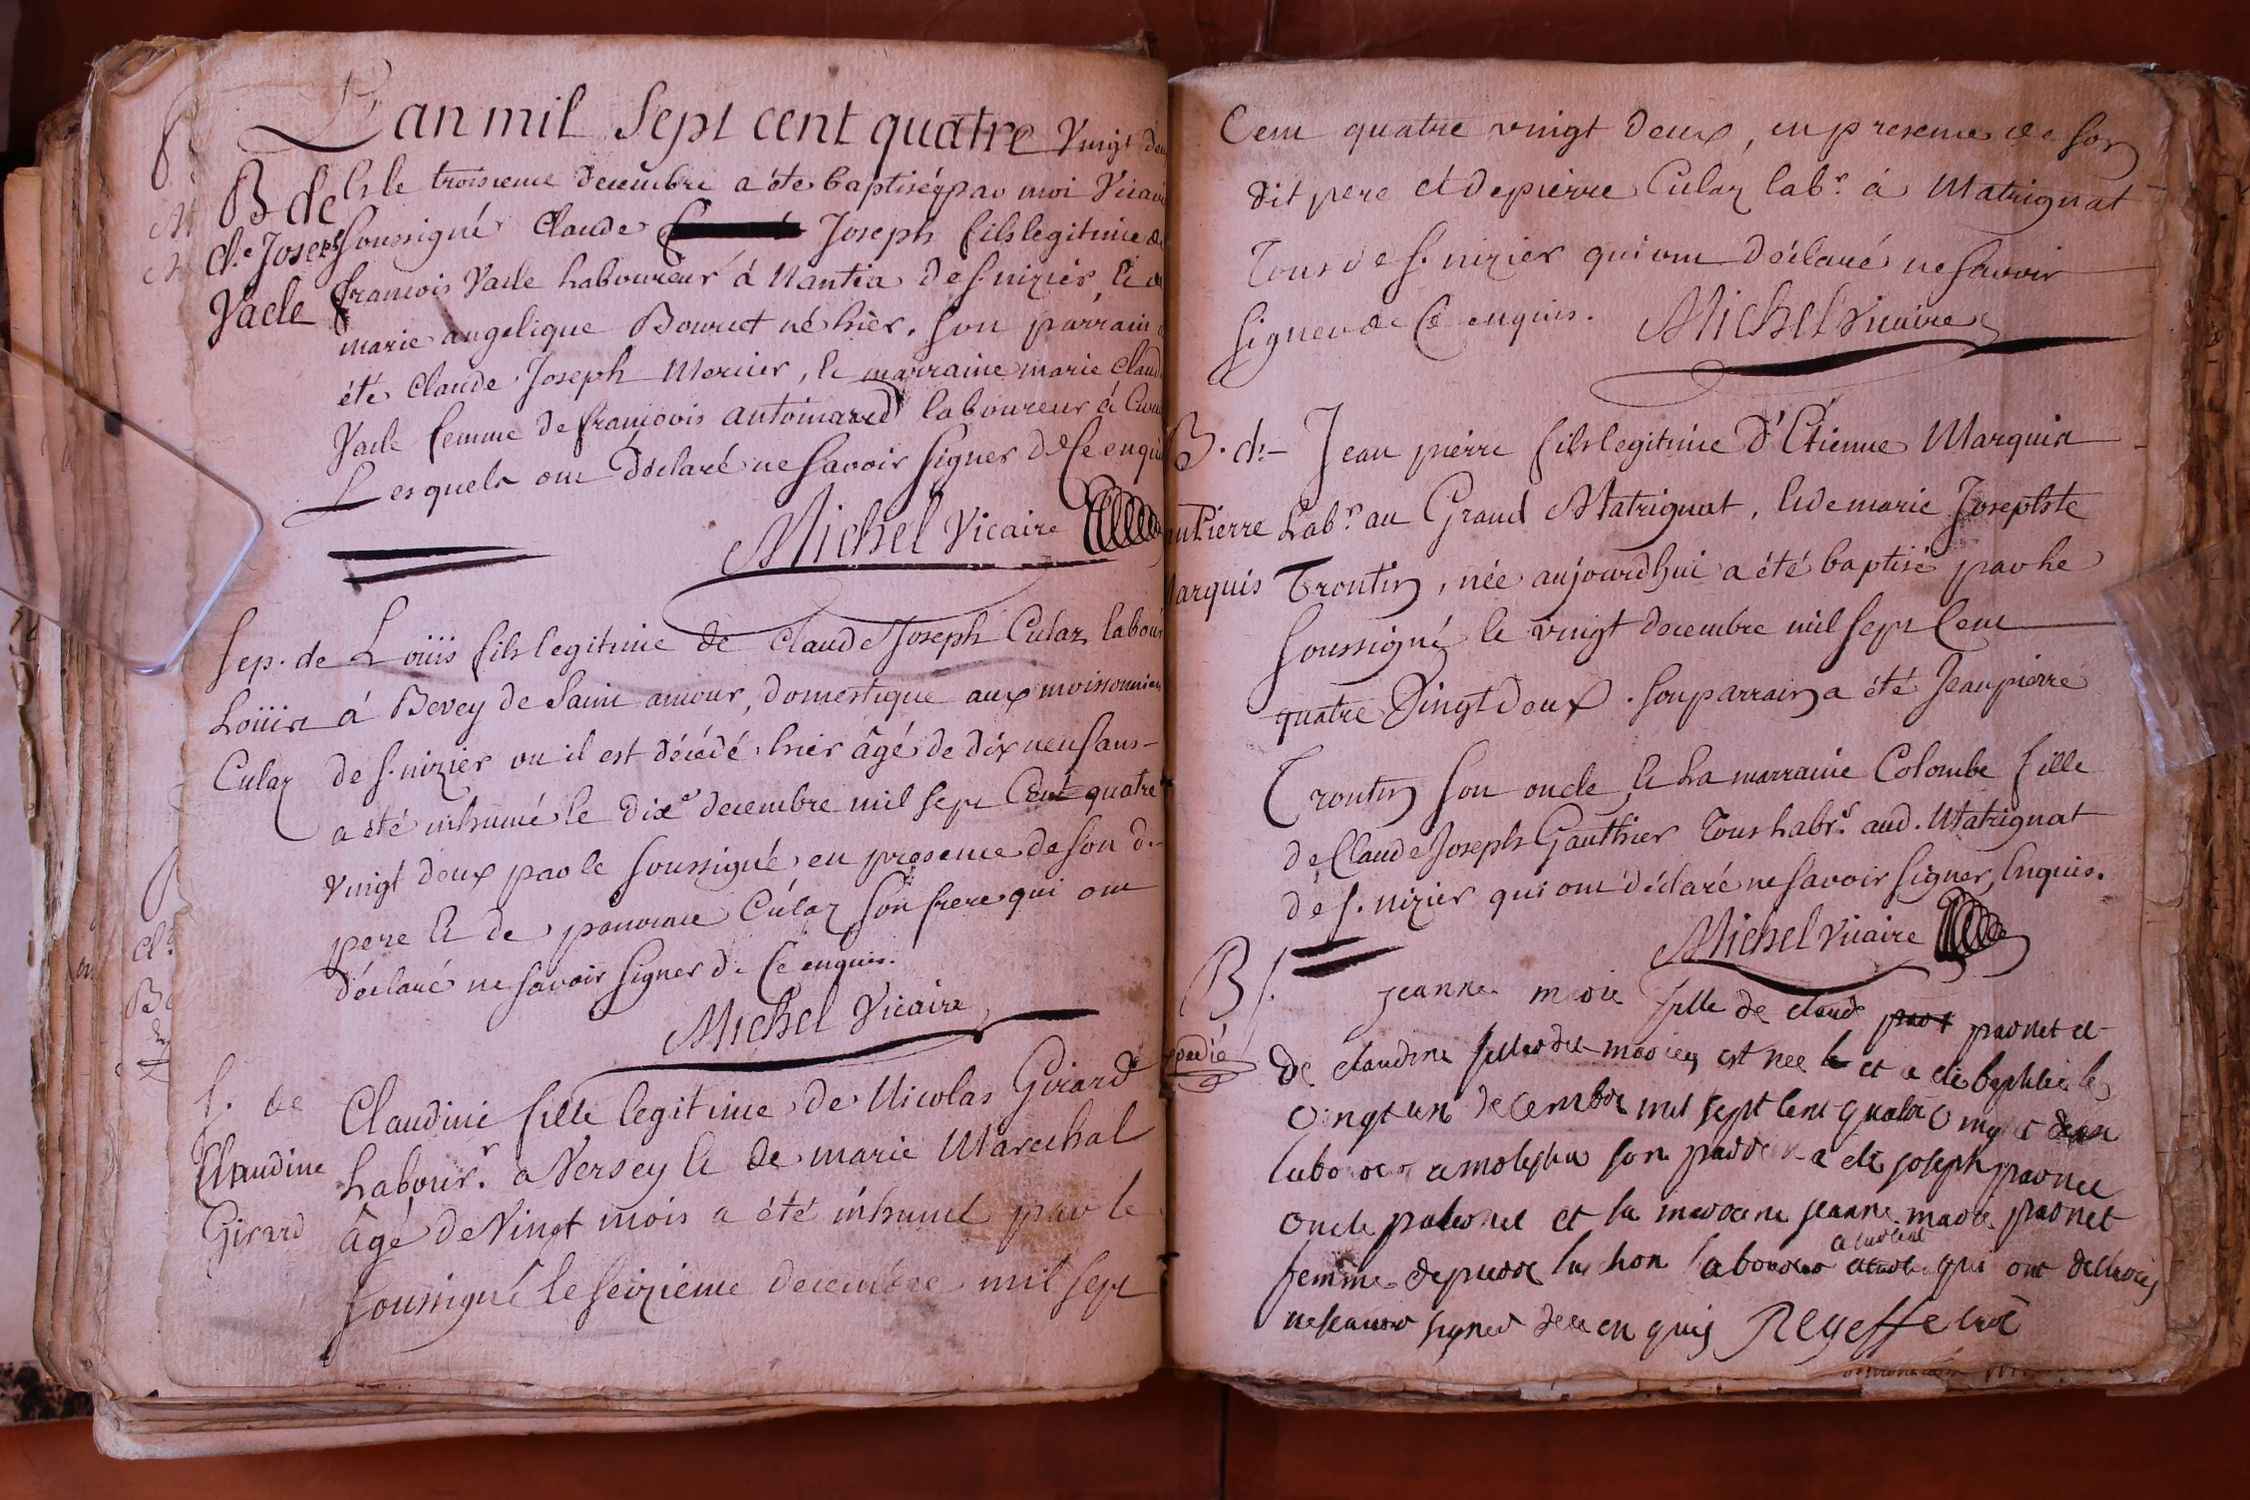 L'an mil Sept cent quatre Vingt deux
B de
& le troisieme decembre a été baptisé par moi Vicaire
cl.e Joseph
soussigné Claude Joseph fils legitime de
Vacle
francois Vacle Laboureur à Nantia de s. nizier, & de
marie angelique Bourcet né hièr. son parrain a
été Claude Joseph Mercier, & marraine marie Claude
Vacle femme de francois antoimard laboureur à
Lesquels ont déclaré ne savoir signer de ce enquis
Michel Vicaire
Sep. de
Louis
Culaz
Loüis fils legitime de Claude Joseph Culaz labour
à Bevey de saint amour, domestique aux moissonniers
de s. nizier ou il est décédé hier âgé de dix neuf ans -
a été inhumé le dixe decembre mil sept Cent quatre
vingt deux par le soussigné, en presence de son d.
pere & de Culaz son frere qui ont
déclaré ne savoir signer de ce enquis.
Michel Vicaire
S. de
Claudine
Girard
Claudine fille legitime de Nicolas Girard
Labour.r a Versey & de marie Marechal
âgé de Vingt mois a été inhumé par le
soussigné le seizieme decembre mil sept
Cent quatre vingt deux, en presence de son
dit pere et de pierre Culaz lab.r à Matrignat
Tous de s. nizier qui ont déclaré ne savoir
signer de ce enquis. Michel Vicaire
B. de
Jean Pierre
Marquis
Jean pierre fils legitime d'Etienne Marquis
Lab.r au Grand Matrignat, & de marie Josephte
Trontin, née aujourdhui a été baptisé par le
soussigné le vingt decembre mil sept cent
quatre Vingt deux. son parrain a été Jean pierre
Trontin son oncle, & la marraine Colombe fille
de Claude Joseph Gauthier Tous Labrs. aud. Matrignat
de s. nizier qui ont déclaré ne savoir signer, Enquis.
Michel Vicaire
B f.
jeanne marie fille de claude parnet et
de claudine est nee et a ete baptisée le
vingt un decembre mil sept cent quatre vingt deux
son a ete joseph parnet
oncle paternel et la maraine jeanne marie parnet
femme de pierre qui ont declaré
ne scavoir signer de ce enquis Regeffe curé